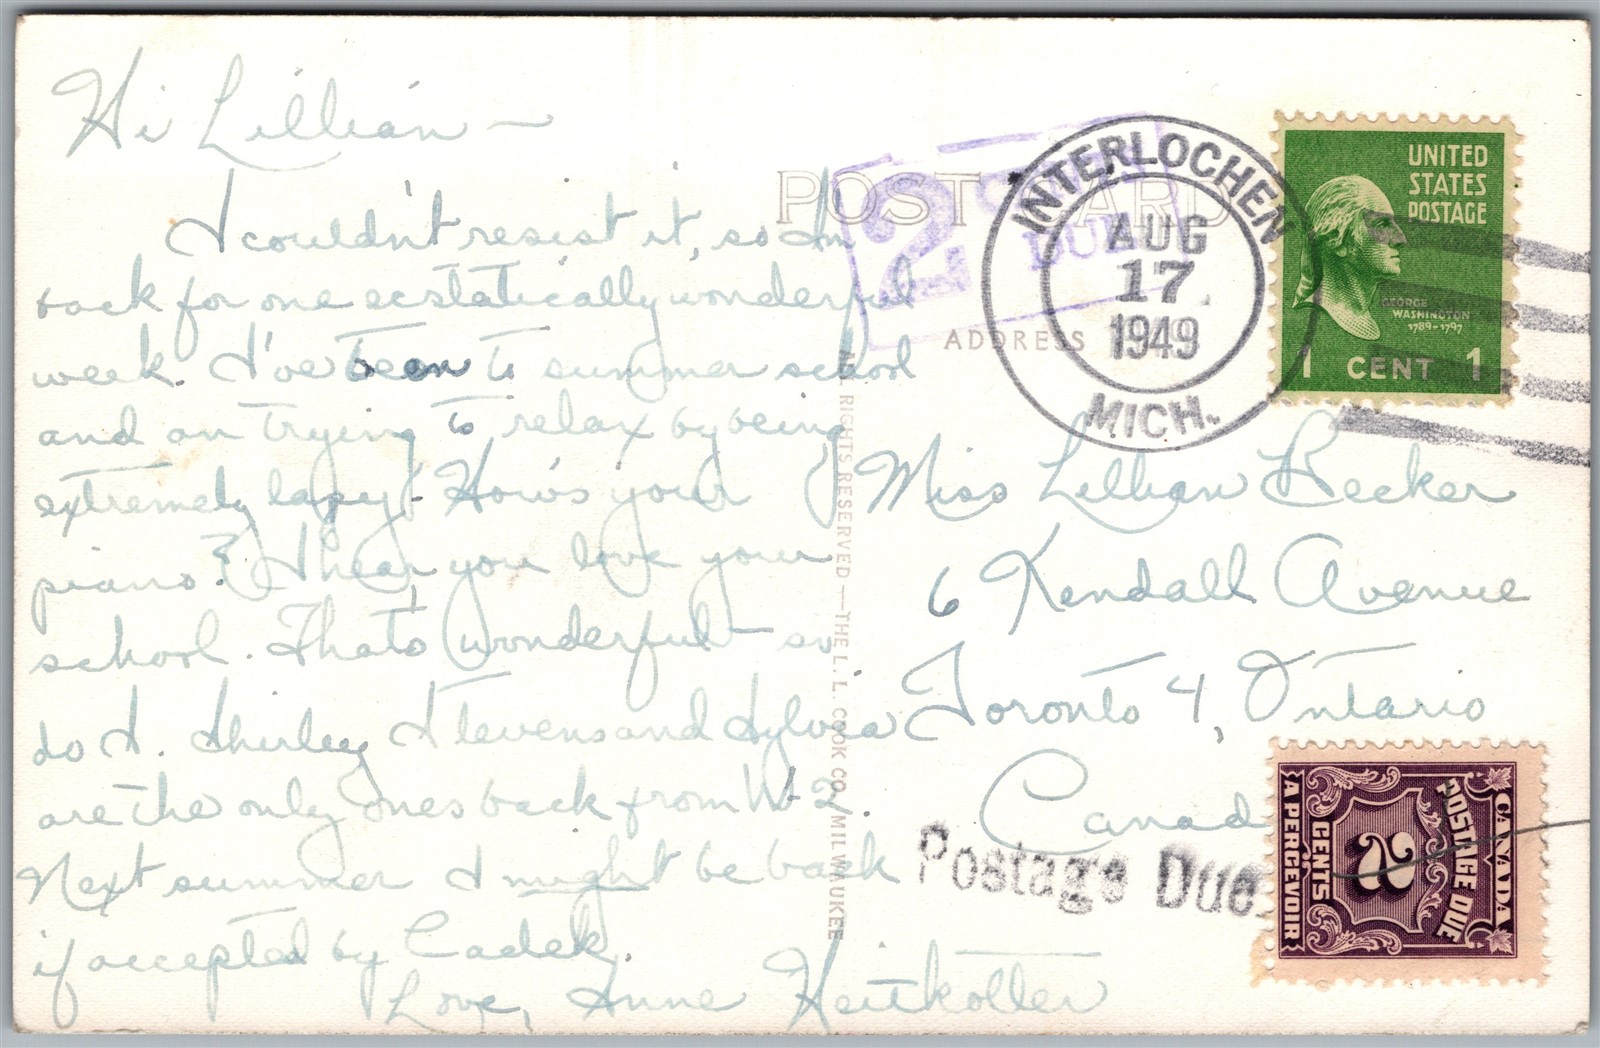 Hi Lillian —
I couldn't resist it, so I'm
back for one ecstatically wonderful
week. I've been to summer school
and am trying to relax by being
extremely lazy! How's your
piano? I hear you love your
school. That's wonderful — so
do I. Shirley Stevens and Sylvia
are the only ones back from W-2.
Next summer I might be back
if accepted by Cadek.
Love, Anne
POST CARD
ADDRESS
2
DUE
INTERLOCHEN
AUG
17
1949
MICH.
UNITED
STATES
POSTAGE
GEORGE
WASHINGTON
1789-1797
1 CENT 1
ALL RIGHTS RESERVED—THE L. L. COOK CO., MILWAUKEE
Miss Lillian Becker
6 Kendall Avenue
Toronto 4, Ontario
Canada
Postage Due
CANADA
POSTAGE DUE
2
CENTS
A PERCEVOIR